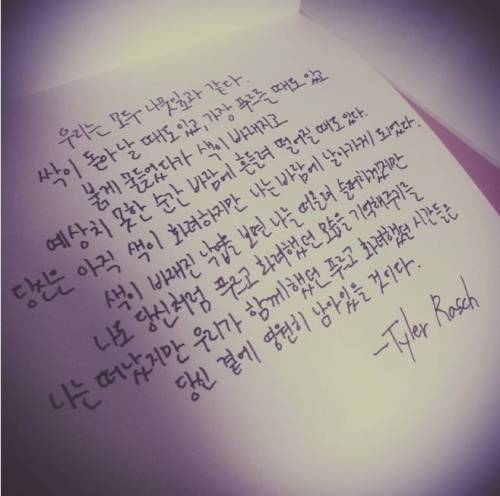 우리는 모두 나뭇잎과 같다.
싹이 돋아날 때도 있고, 가장 푸르를 때도 있고
붉게 물들었다가 색이 바래지고
예상치 못한 순간 바람에 흔들려 떨어질 때도 있다.
당신은 아직 색이 화려하지만 나는 바람에 날아가게 되었다.
색이 바래진 낙엽을 보면 나를 떠올려 슬퍼지겠지만
나도 당신처럼 푸르고 화려했던 모습을 기억해주기를
나는 떠났지만 우리가 함께했던 푸르고 화려했던 시간들은
당신 곁에 영원히 남아있을 것이다.
-Tyler Rasch